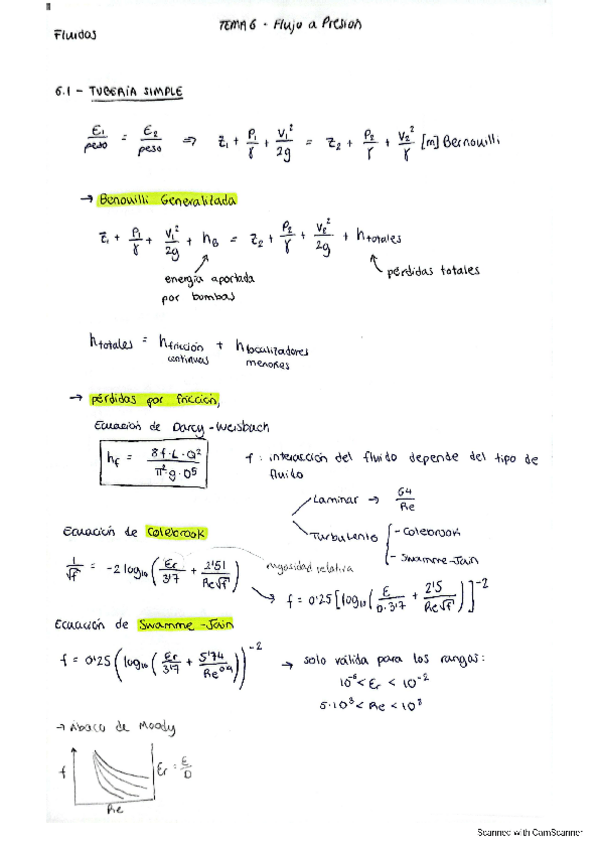 TEMA 6 · Flujo a Presion
Fluidos
6.1 - TUBERÍA SIMPLE
E₁/peso = E₂/peso ⇒ z₁ + P₁/γ + V₁²/2g = z₂ + P₂/γ + V₂²/γ [m] Bernouilli
→ Benouilli Generalitada
z₁ + P₁/γ + V₁²/2g + h_B = z₂ + P₂/γ + V₂²/2g + h_totales
energia aportada por bombas
pérdidas totales
h_totales = h_fricción continuas + h_localizadores menores
→ pérdidas por fricción,
Ecuación de Darcy-Weisbach
h_f = 8f·L·Q²/π²·g·D⁵
f: interacción del fluido depende del tipo de
fluido
Laminar → 64/Re
Turbulento - Colebrook
- Swamme-Jain
Ecuación de Colebrook
1/√f = -2 log₁₀(Er/3'7 + 2'51/Re√f)
rugosidad relativa
→ f = 0'25[log₁₀(E/D·3'7 + 2'5/Re√f)]⁻²
Ecuación de Swamme-Jain
f = 0'25(log₁₀(Er/3'7 + 5'74/Re⁰'⁹))⁻²
→ solo válida para los rangos:
10⁻⁶ < Er < 10⁻²
5·10³ < Re < 10⁸
→ Ábaco de Moody
f
Er = E/D
Re
Scanned with CamScanner